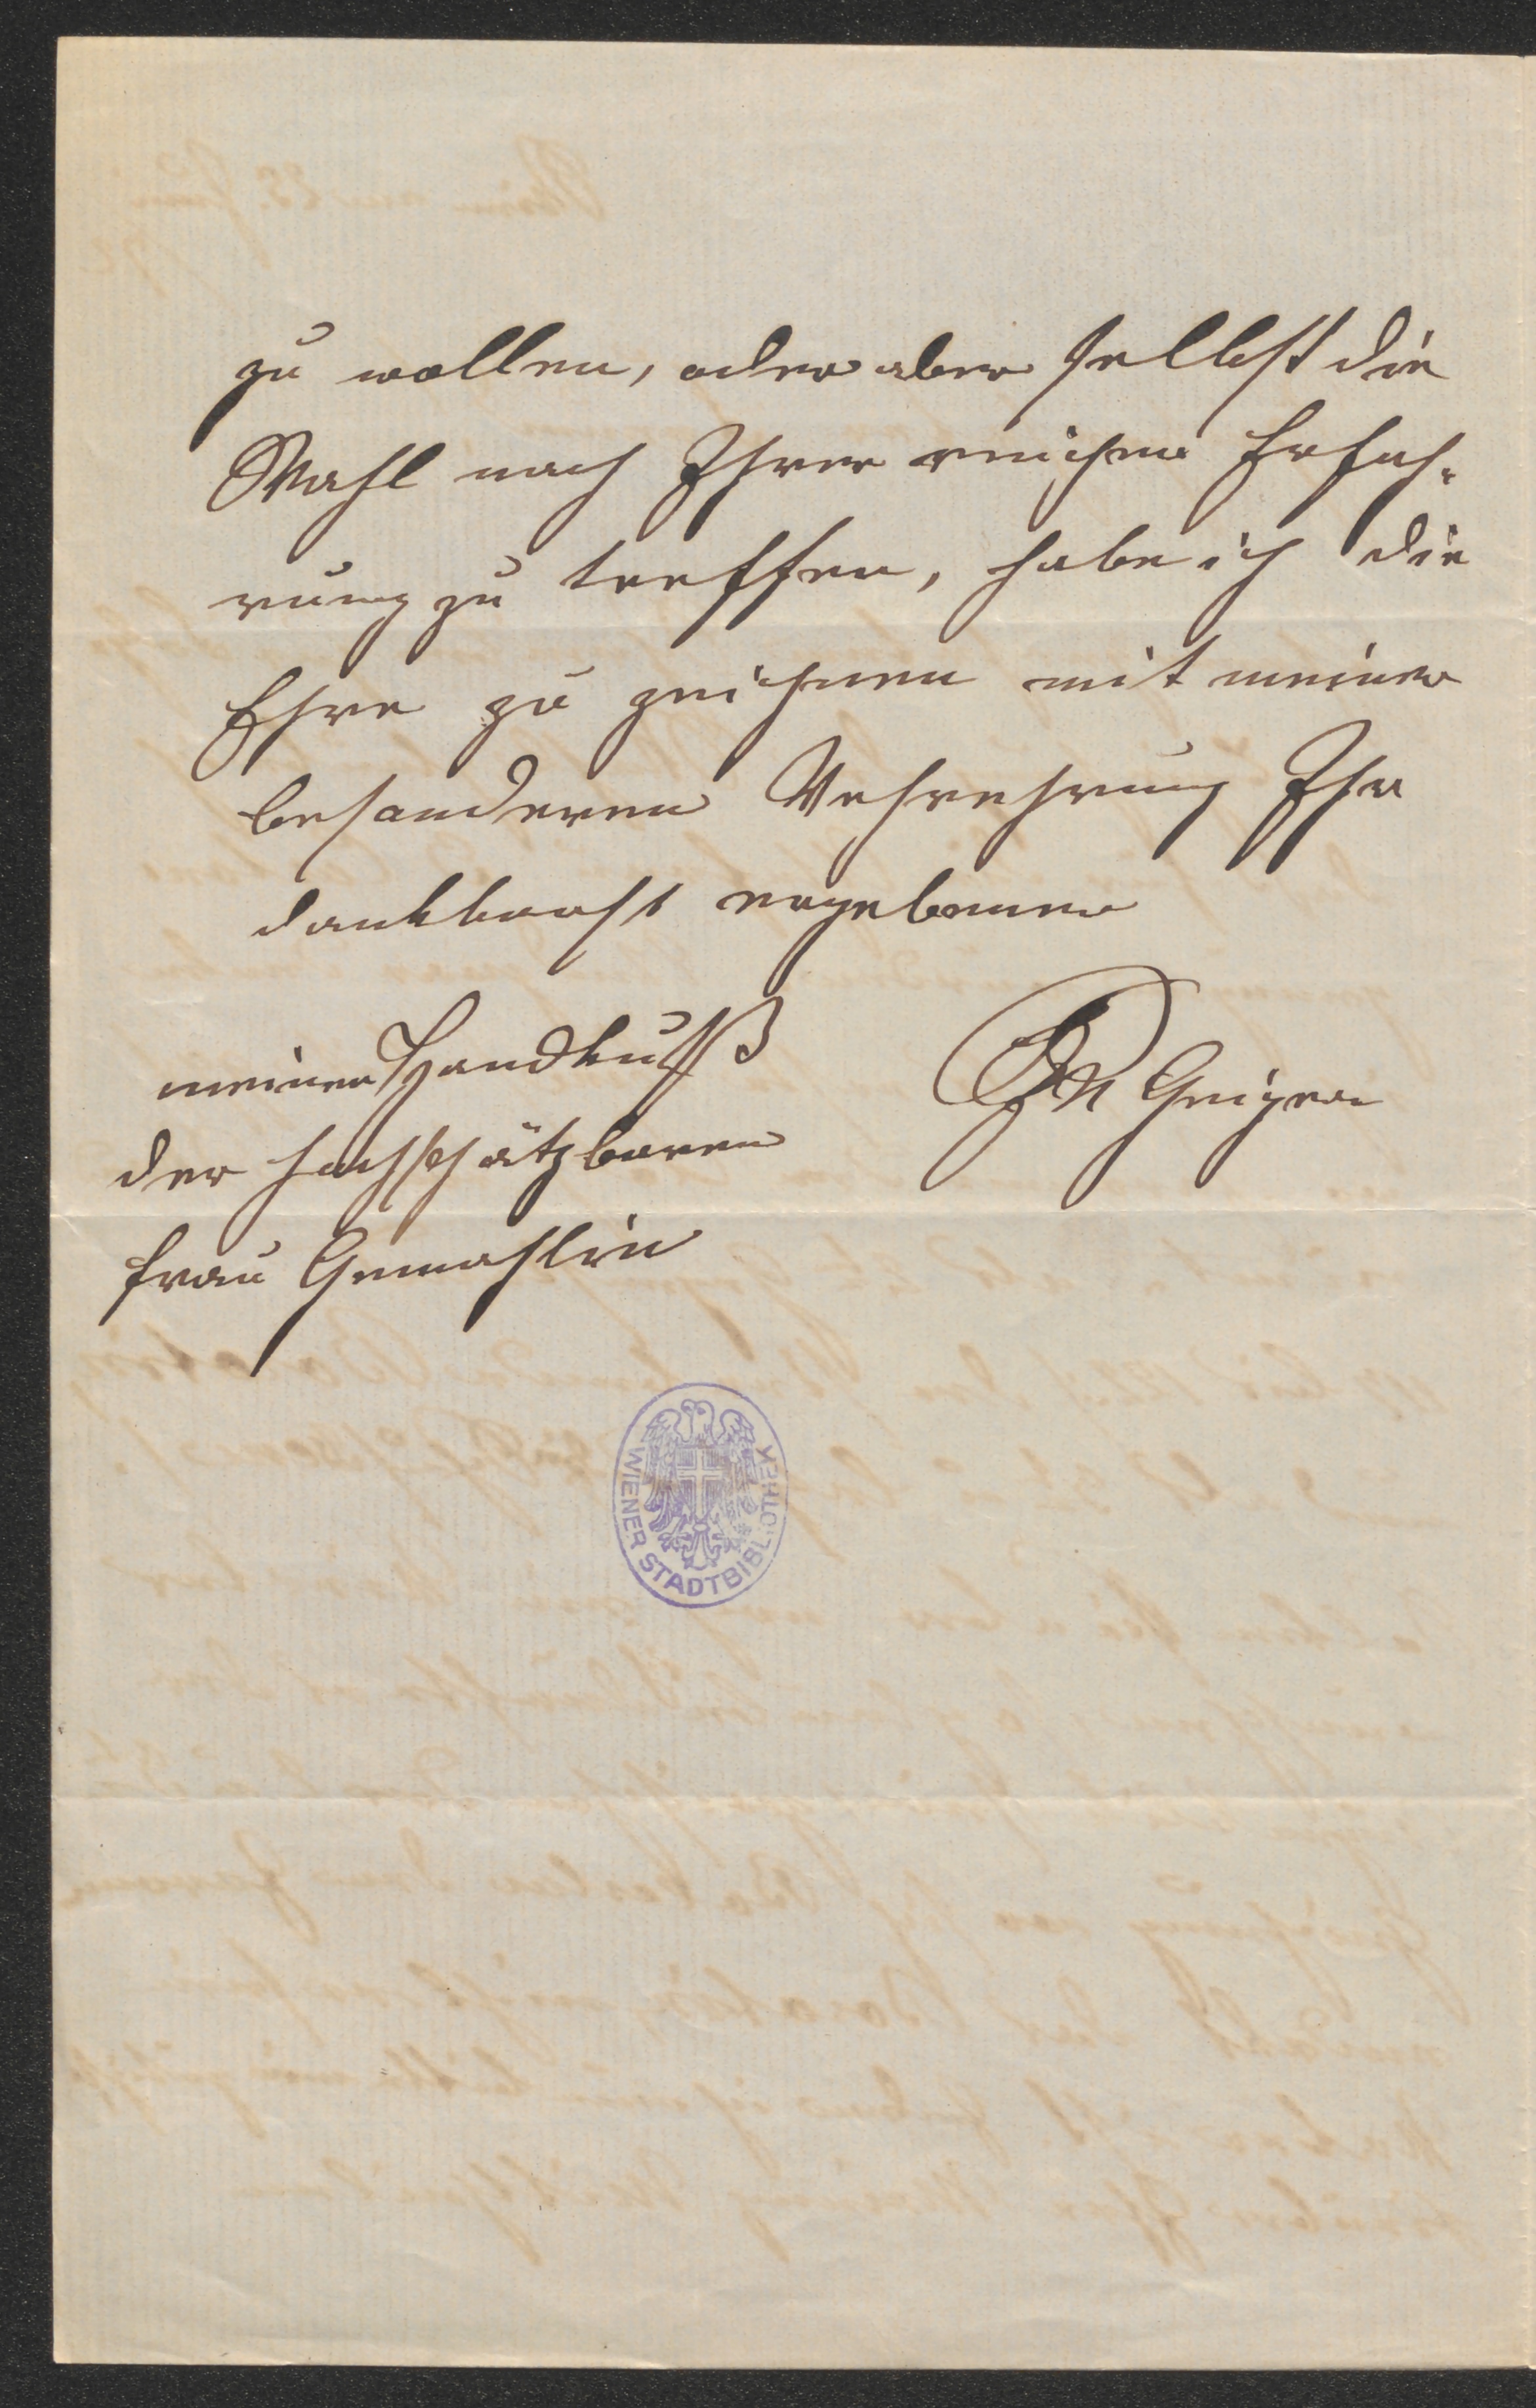 zu wollen, oder aber selbst die
Wahl nach Ihrer reichen Erfah-
rung zu treffen, habe ich die
Ehre zu zeichnen mit meiner
besonderen Verehrung Ihr
dankbarst ergebener
Geiger
meinen Handkuß
der hochschätzbaren
Frau Gemahlin
WIENER STADTBIBLIOTHEK